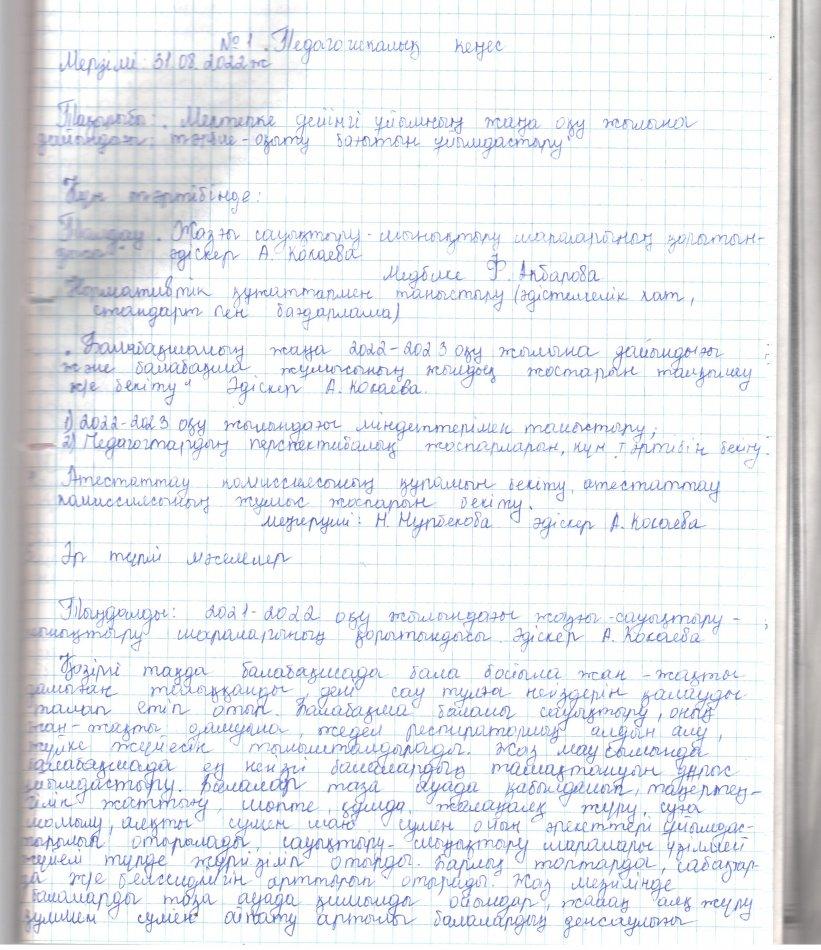 №1. Педагогикалық кеңес
Мерзімі: 31.08.2022ж
Тақырыбы: Мектепке дейінгі ұйымның жаңа оқу жылына
дайындығы, тәрбие-оқыту бағытын ұйымдастыру
Күн тәртібінде:
Талдау. Жазғы сауықтыру-шынықтыру шараларының қорытын-
дысы" әдіскер А. Кокаева
Медбике Ф. Акбарова
Нормативтік құжаттармен таныстыру (әдістемелік хат,
стандарт пен бағдарлама)
"Балабақшаның жаңа 2022-2023 оқу жылына дайындығы
және балабақша жұмысының жылдық жоспарын талқылау
же бекіту" Әдіскер А. Кокаева.
1) 2022-2023 оқу жылындағы міндеттерімен таныстыру;
2) Педагогтардың перспективалық жоспарларын, күн тәртібін бекіту.
Аттестаттау комиссиясының құрамын бекіту, атестаттау
комиссиясының жұмыс жоспарын бекіту.
меңгеруші: Н. Нурбекова әдіскер А. Кокаева
Әр түрлі мәселелер
Тыңдалды: 2021-2022 оқу жылындағы жазғы-сауықтыру-
шынықтыру шараларының қорытындысы. Әдіскер А. Кокаева
Қазіргі таңда балабақшада бала бойына жан-жақты
дамыған, дені сау тұлға негіздерін қалауды
талап етіп отыр. Балабақша баланы сауықтыру, оның
жан-жақты дамуына, жедел респираторлық алдын алу,
жүйке жүйесін тынышталдырады. Жаз маусымында
балабақшада ең негізгі балалардың тамақтануын дұрыс
ұйымдастыру. Балалар таза ауада қабылданып, таңертең-
гілік жаттығу, шөпте, құмда, жалаңаяқ жүру, суға
шомылу, аяқты сумен шаю сумен ойын әрекеттері ұйымдас-
тырылып отырылады, сауықтыру-шынықтыру шаралары үзіліссіз
жүйелі түрде жүргізіліп отырды. Барлық топтарда, сабақтар-
да же белсенділігін арттырып отырады. Жаз мезгілінде
балаларды таза ауада қимылды ойындар, жалаң аяқ жүру
құммен сумен ойнату арқылы балалардың денсаулығы